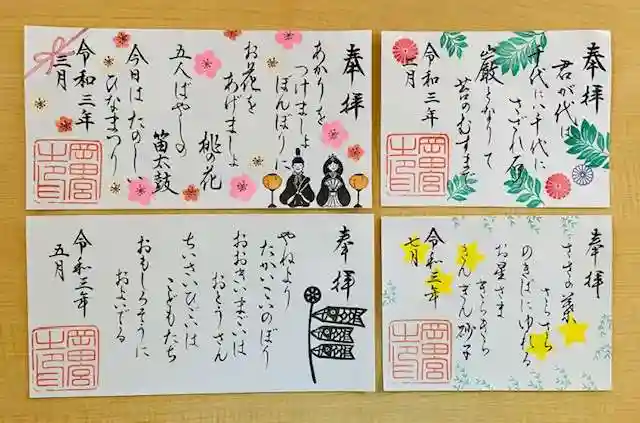 奉拝
あかりを
つけましょ
ぼんぼりに
お花を
あげましょ
桃の花
五人ばやしの
笛太鼓
今日はたのしい
ひなまつり
令和三年
三月
岡田宮
奉拝
君が代は
千代に八千代に
さざれ石
巌となりて
苔のむすまで
令和三年
奉拝
やねより
たかいこいのぼり
おおきいまごいは
おとうさん
ちいさいひごいは
こどもたち
おもしろそうに
およいでる
令和三年
五月
岡田宮
奉拝
ささの葉
さらさら
のきばにゆれる
お星さま
きらきら
きんぎん砂子
令和三年
七月
岡田宮